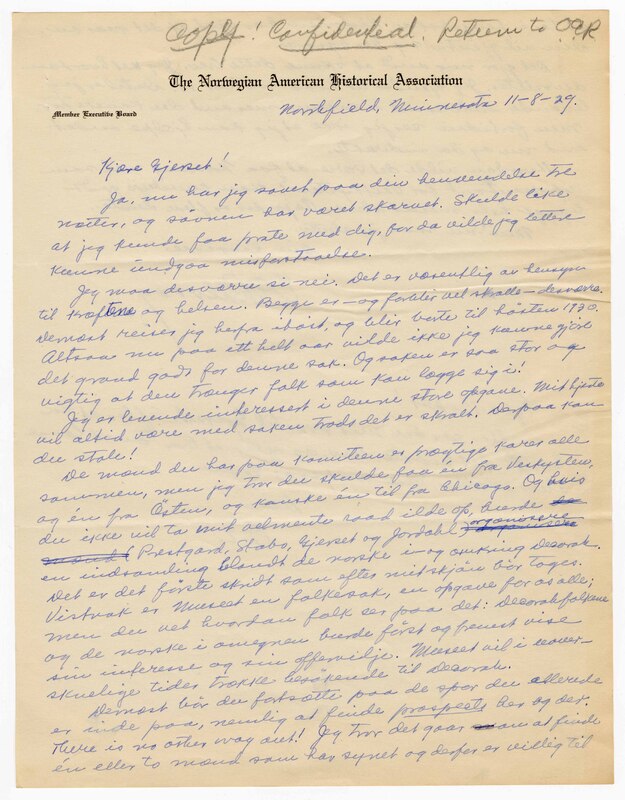 Copy! Confidential. Return to O.E.R
The Norwegian American Historical Association
Member Executive Board
Northfield, Minnesota 11-8-29.
Kjære Gjerset!
Ja, nu har jeg sovet paa din henvendelse tre
nætter, og søvnen har været skarvet. Skulde like
at jeg kunde faa prate med dig, for da vilde jeg lettere
kunne undgaa misforstaaelse.
Jeg maa desværre si nei. Det er væsentlig av hensyn
til kræftene og helsen. Begge er – og forblir vel skralle – desværre.
Dernæst reiser jeg herfra ihöst, og blir borte til hösten 1930.
Altsaa nu paa ett helt aar vilde ikke jeg kunne gjöre
det grand gods for denne sak. Og saken er saa stor og
vigtig at den trænger folk som kan lægge sig i!
Jeg er levende interessert i denne store opgave. Mit hjerte
vil altid være med saken trods det er skralt. Derpaa kan
du stole!
De mænd du har paa komiteen er prægtige karer alle
sammen, men jeg tror du skulde faa en fra Vestkysten,
og én fra Östen, og kanske én til fra Chicago. Og hvis
du ikke vil ta mit velmente raad ilde op, burde
Prestgard, Stabo, Gjerset og Jordahl organisere
en indsamling blandt de norske i- og omkring Decorah.
Det er det förste skridt som efter mit skjön bör tages.
Vistnok er Museet en folkesak, en opgave for os alle;
men du vet hvordan folk ser paa det: Decorahfolkene
og de norske i omegnen burde först og fremst vise
sin interesse og sin offervilje. Museet vil i uover-
skuelige tider trække besökende til Decorah.
Dernæst bör du fortsætte paa de spor du allerede
er inde paa, nemlig at finde prospects her og der.
There is no other way out! Jeg tror det gaar an at finde
én eller to mænd som har synet og derfor er villig til